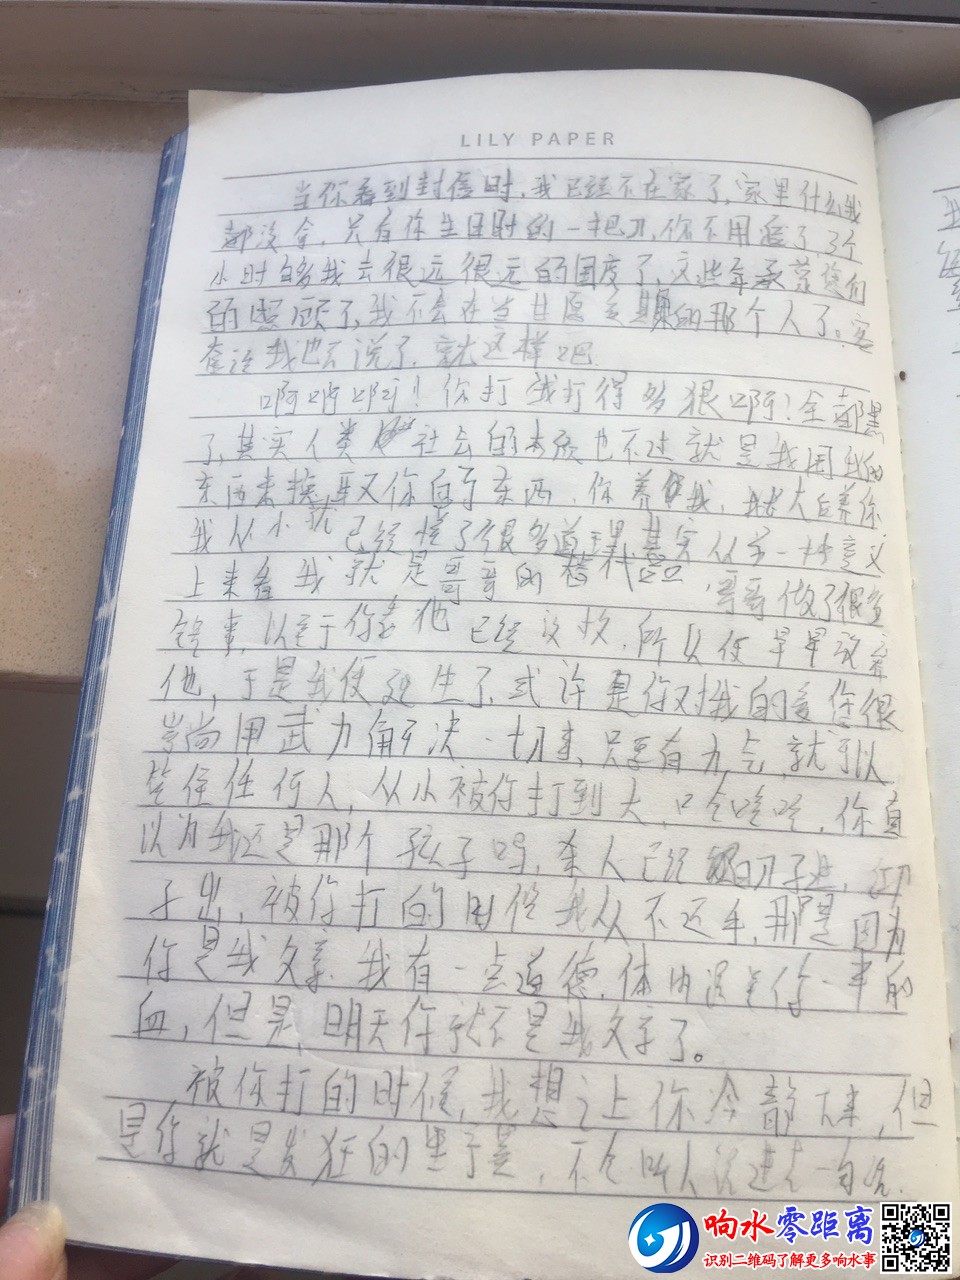 LILY PAPER
当你看到封信时,我已经不在家了,家里什么我
都没拿,只有你生日时的一把刀,你不用追了,3个
小时够我去很远很远的国度了,这些年承蒙您们
的照顾了,我不会在当其愿的那个人了。客
套话我也不说了,就这样吧.
啊啊啊!你打我打得多狠啊!全都黑
了,其实人类社会的本质也不过就是我用我的
东西来换取你自于东西,你养我,我大后养你
我从小就已经懂了很多道理其实从另一种意义
上来看我就是哥哥的替代品,哥哥做了很多
错事,以至于你看他已经没救,所以便早早放弃
他,于是我便诞生了,或许是你对我的爱你很
崇尚用武力解决一切事,只要有力气,就可以
管住任何人,从小被你打到大,只会吃吃,你真
以为我还是那个孩子吗,杀人已经白刀子进,红刀
子出,被你打的时候我从不还手,那是因为
你是我父亲,我有一点道德,体内混着你一半的
血,但是,明天你就不是我父亲了。
被你打的时候,我想让你冷静下来,但
是你就是发狂的,不会听人说进去一句话.
响水零距离
识别二维码了解更多响水事